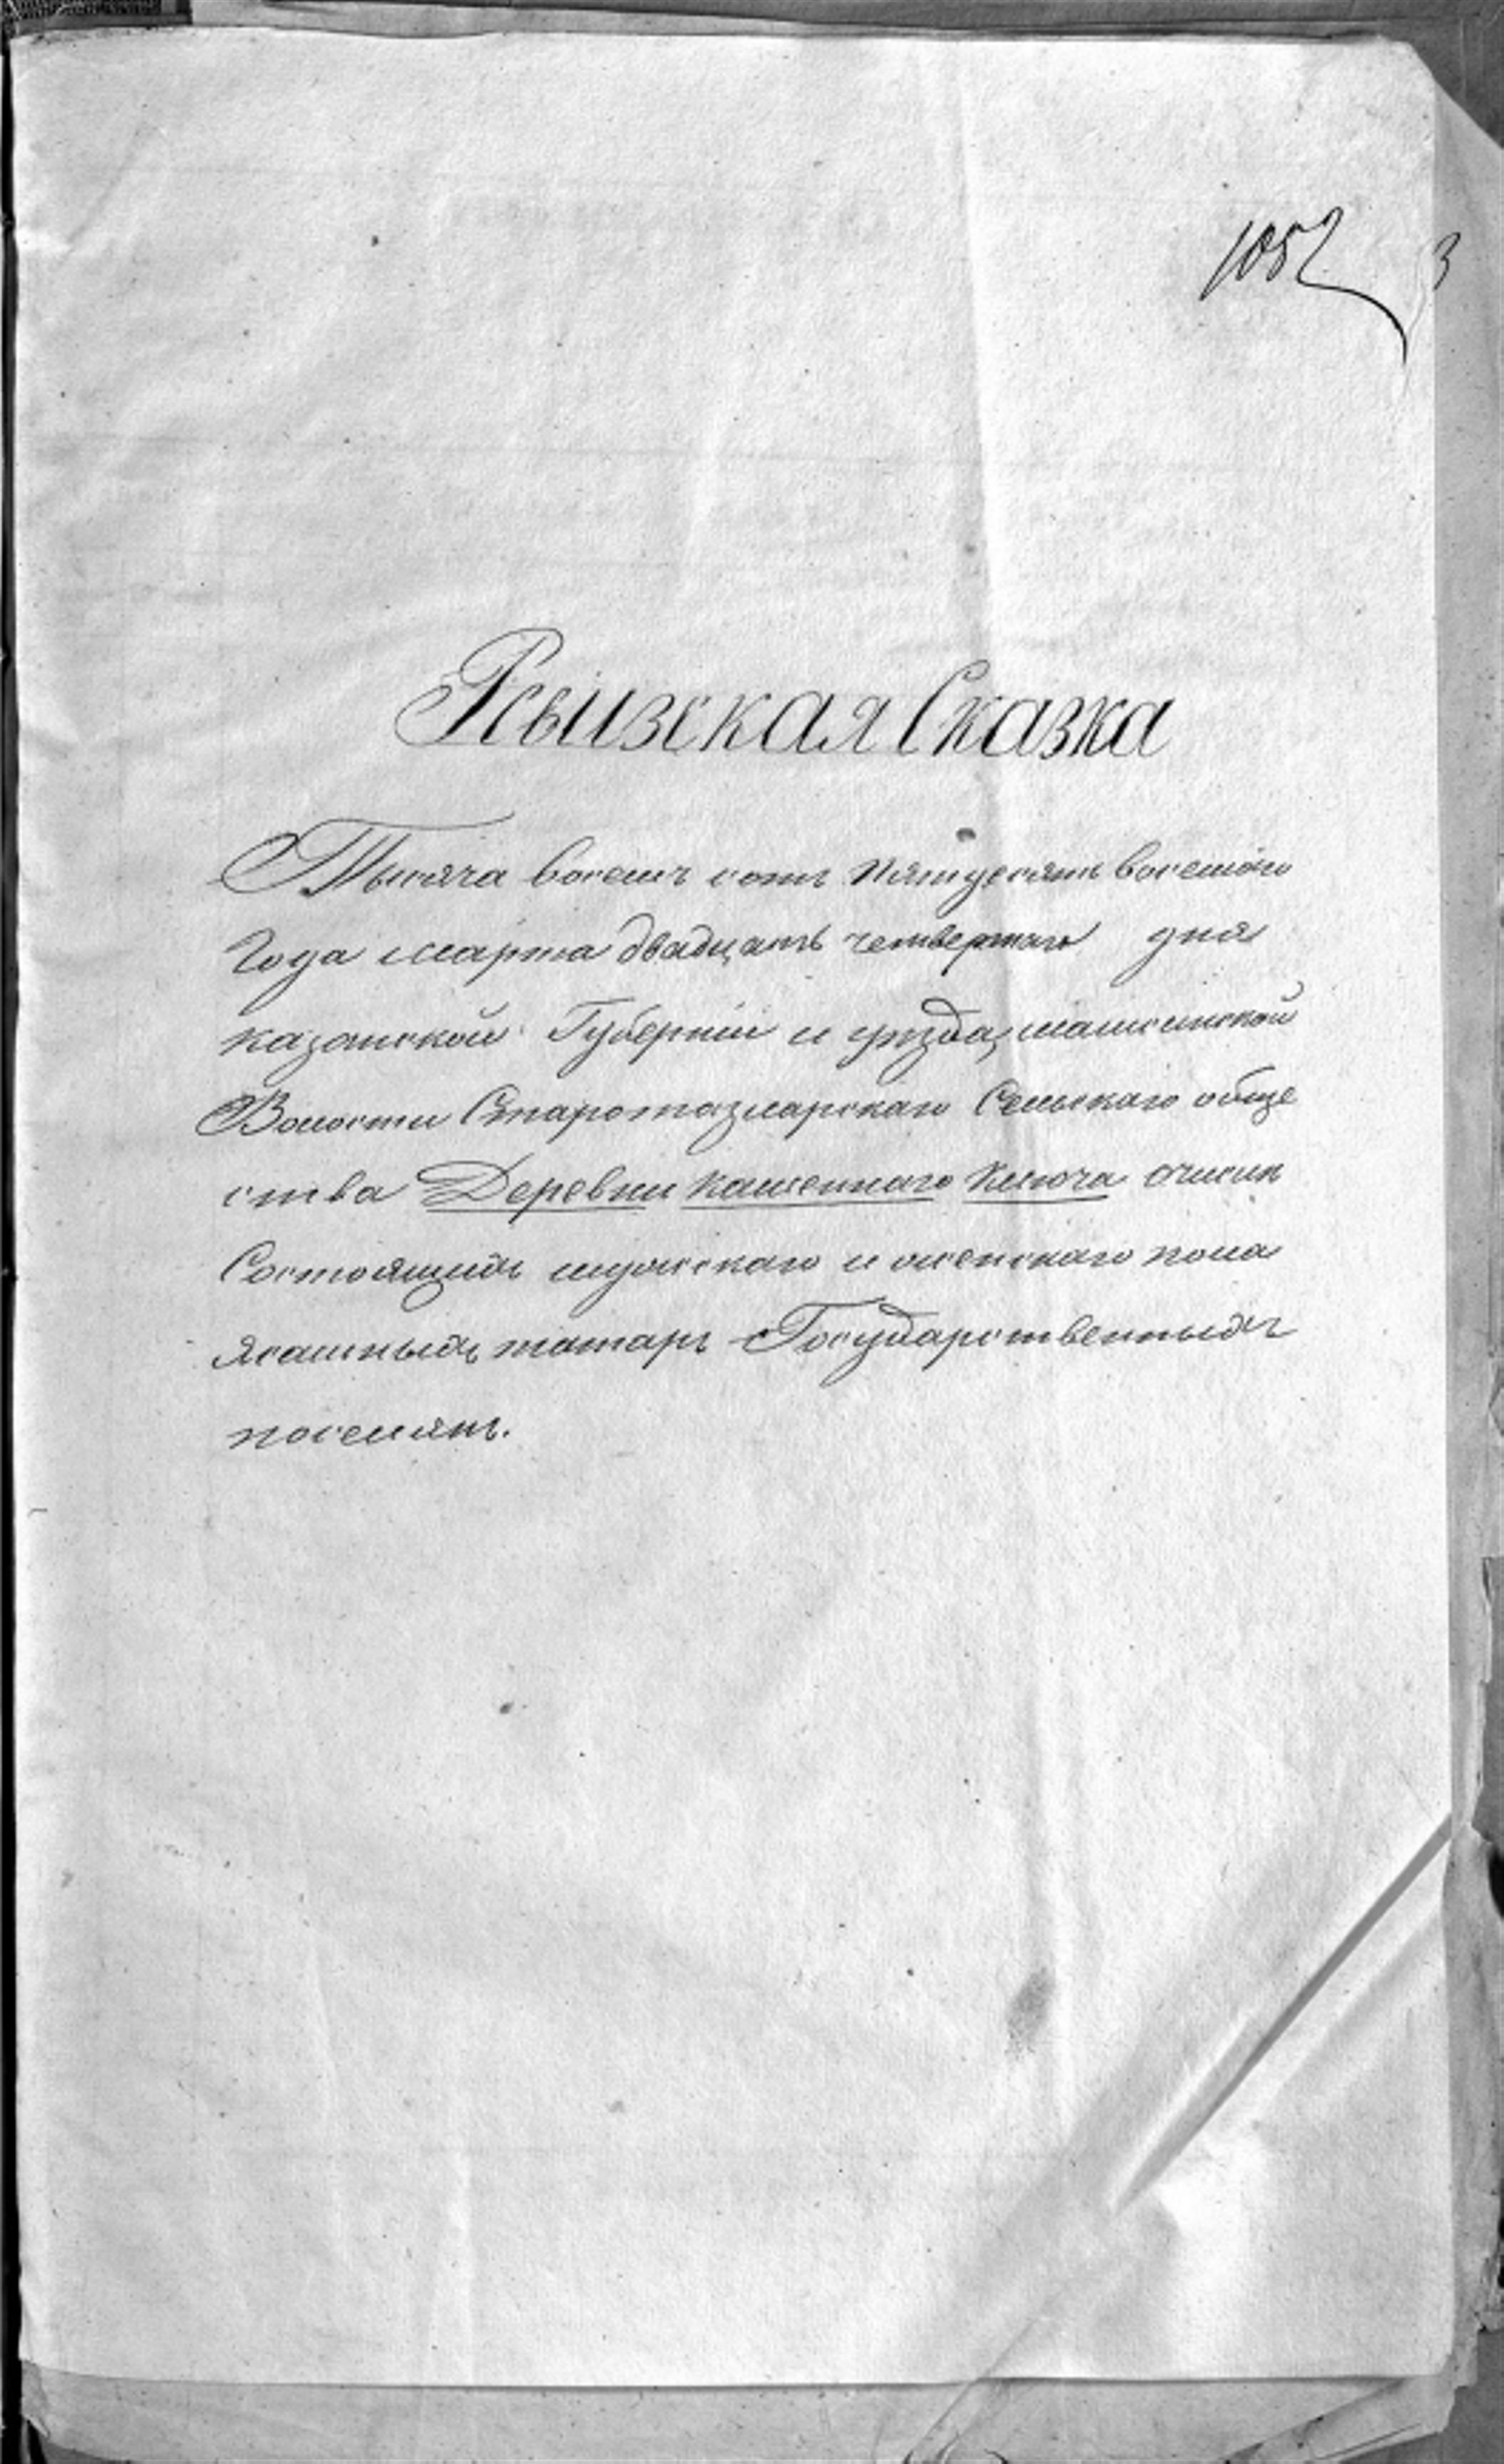 1052
3
Ревизская Сказка
Тысяча восемь сотъ пятьдесятъ восьмого
Года марта двадцать четвертаго дня
казанской Губерніи и уѣзда,
Волости Сельскаго обще
ства Деревни каменнаго Ключа о
Состоящихъ мужскаго и женскаго пола
ясашныхъ татаръ Государственныхъ
поселянъ.